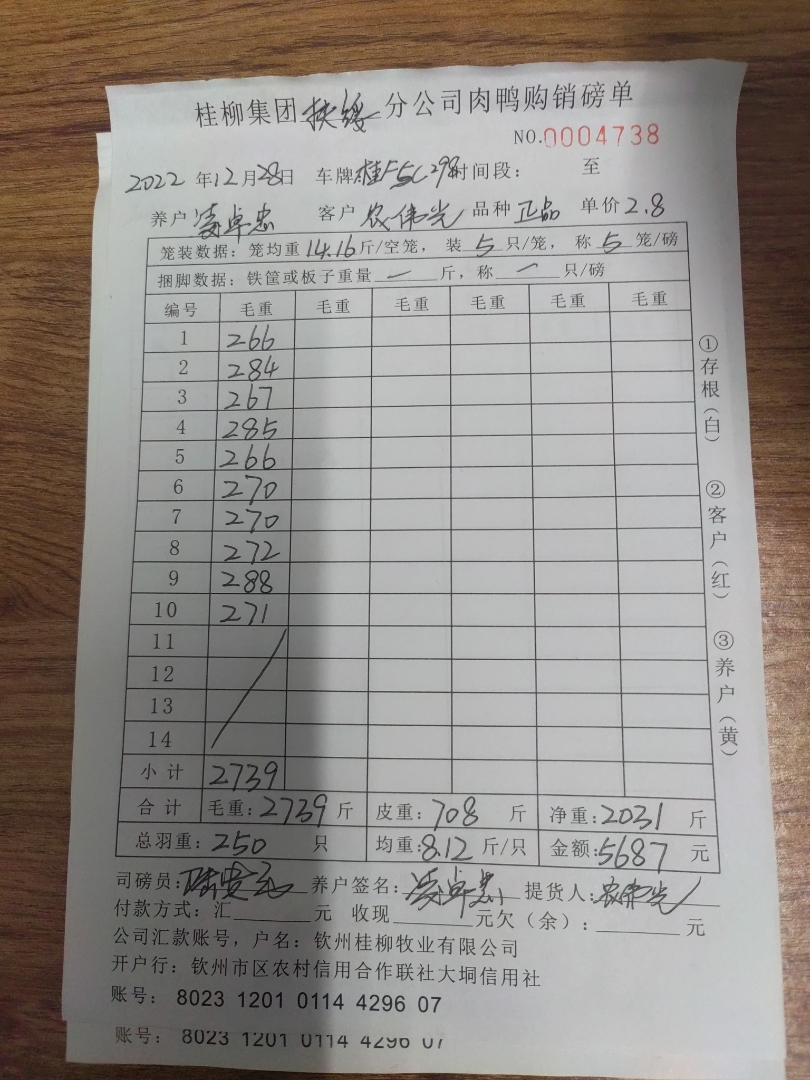 桂柳集团扶绥分公司肉鸭购销磅单
NO.0004738
2022年12月28日 车牌桂F5C298时间段: 至
养户凌卓忠 客户农伟光 品种正品 单价2.8
笼装数据:笼均重14.16斤/空笼,装5只/笼,称5笼/磅
捆脚数据:铁筐或板子重量一斤,称一只/磅
编号 毛重 毛重 毛重 毛重 毛重 毛重
1 266
2 284
3 267
4 285
5 266
6 270
7 270
8 272
9 288
10 271
11
12
13
14
小计 2739
合计 毛重:2739斤 皮重:708斤 净重:2031斤
总羽重:250只 均重:8.12斤/只 金额:5687元
司磅员: 养户签名:凌卓忠 提货人:农伟光
付款方式:汇____元 收现____元欠(余):____元
公司汇款账号,户名:钦州桂柳牧业有限公司
开户行:钦州市区农村信用合作联社大垌信用社
账号: 8023 1201 0114 4296 07
账号: 8023 1201 0114 4296 07
①存根(白)
②客户(红)
③养户(黄)